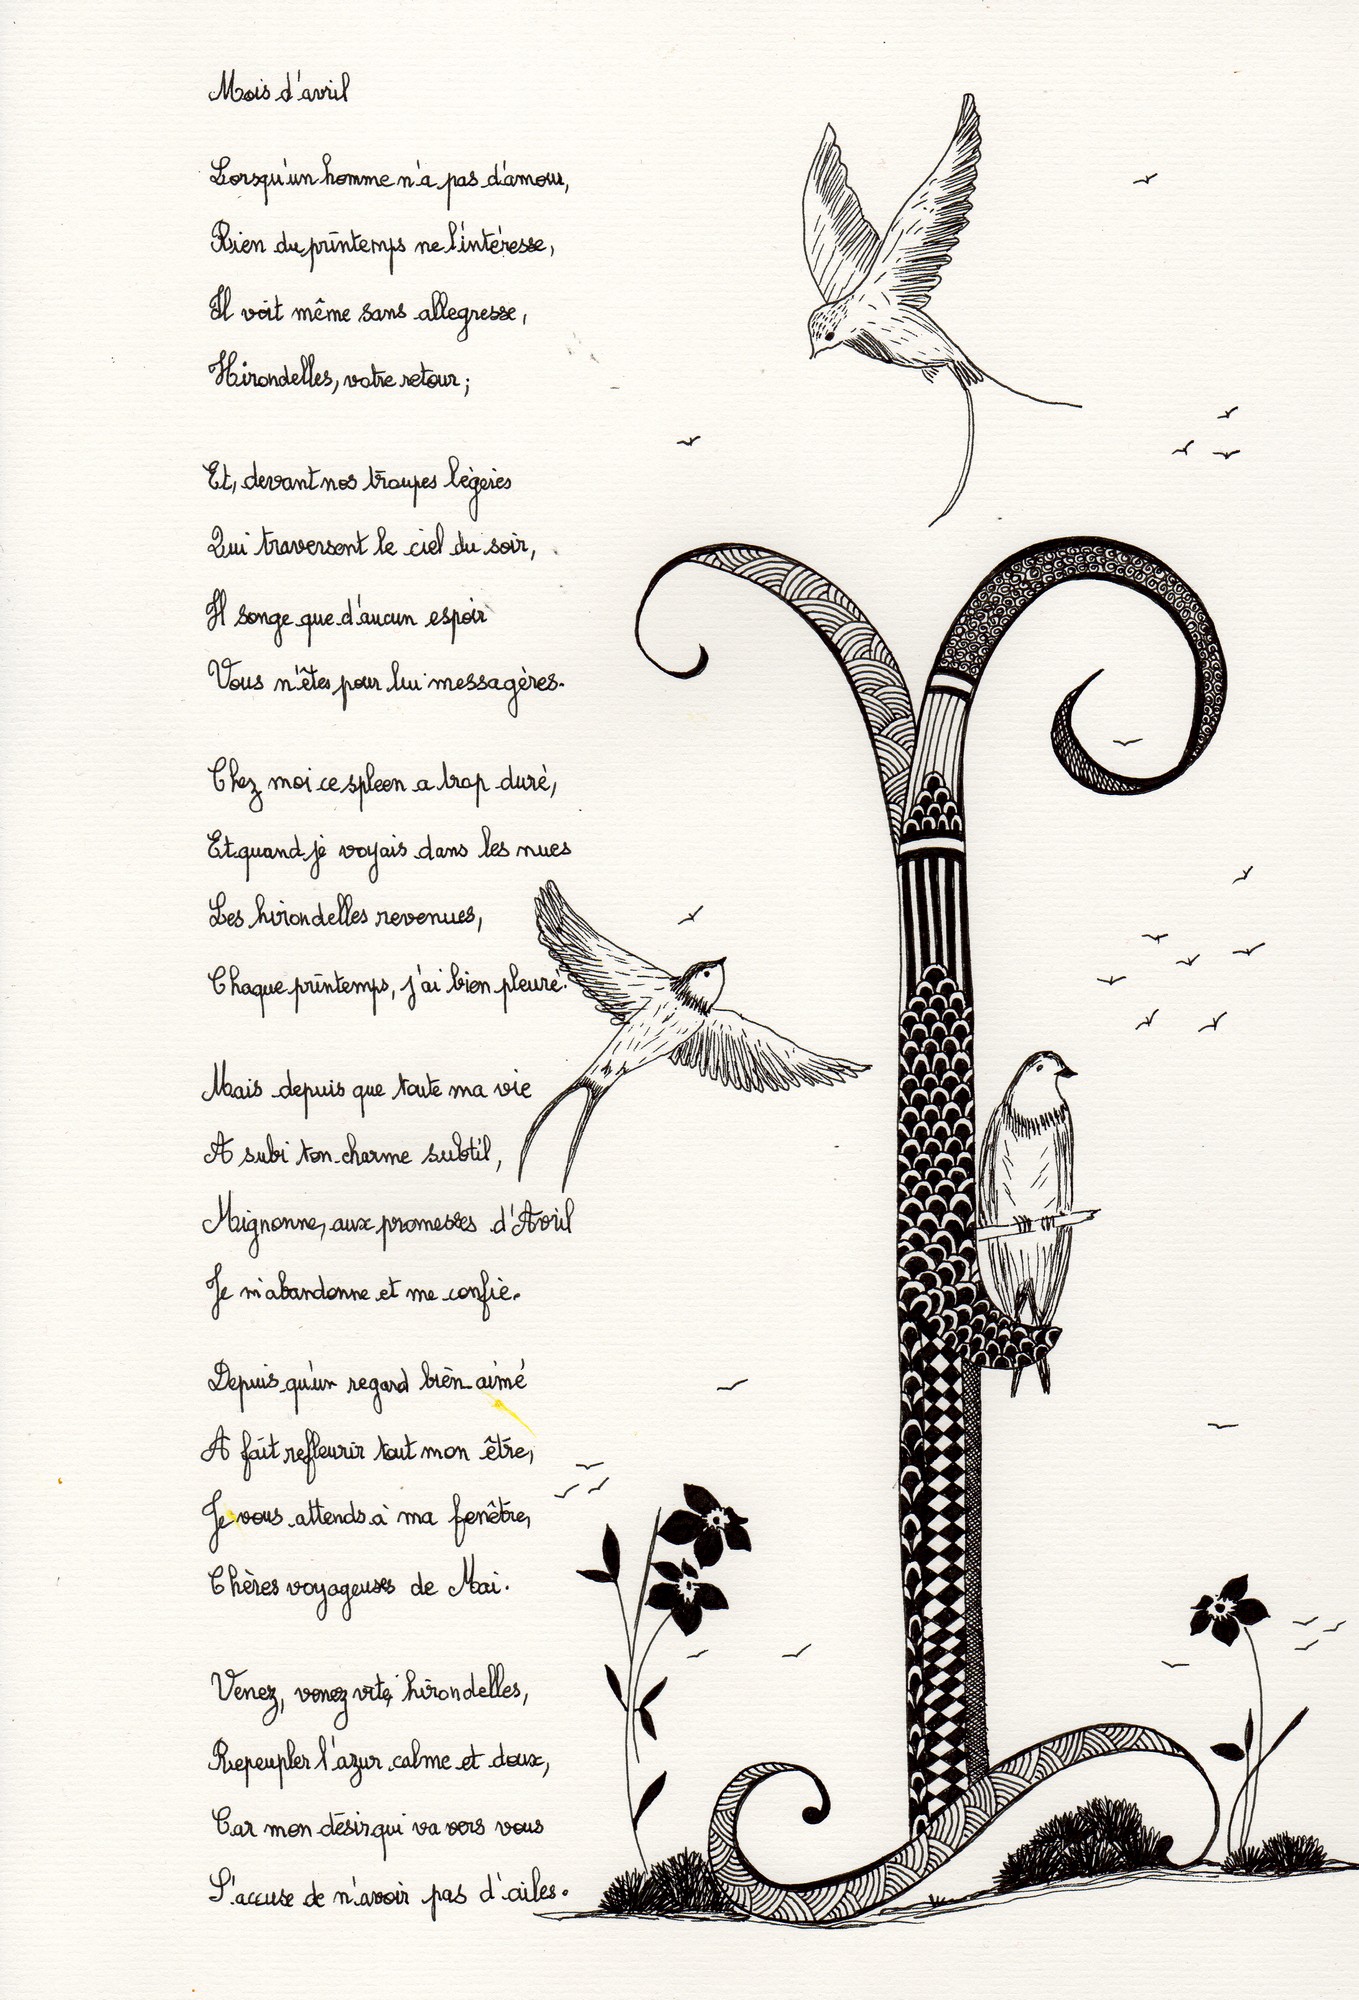 Mois d'avril
Lorsqu'un homme n'a pas d'amour,
Rien du printemps ne l'intéresse,
Il voit même sans allegresse,
Hirondelles, votre retour ;
Et, devant nos troupes légères
Qui traversent le ciel du soir,
Il songe que d'aucun espoir
Vous n'êtes pour lui messagères.
Chez moi ce spleen a trop duré,
Et quand je voyais dans les nues
Les hirondelles revenues,
Chaque printemps, j'ai bien pleuré.
Mais depuis que toute ma vie
A subi ton charme subtil,
Mignonne, aux promesses d'Avril
Je m'abandonne et me confie.
Depuis qu'un regard bien aimé
A fait refleurir tout mon être,
Je vous attends à ma fenêtre,
Chères voyageuses de Mai.
Venez, venez vite hirondelles,
Repeupler l'azur calme et doux,
Car mon désir qui va vers vous
S'accuse de n'avoir pas d'ailes.